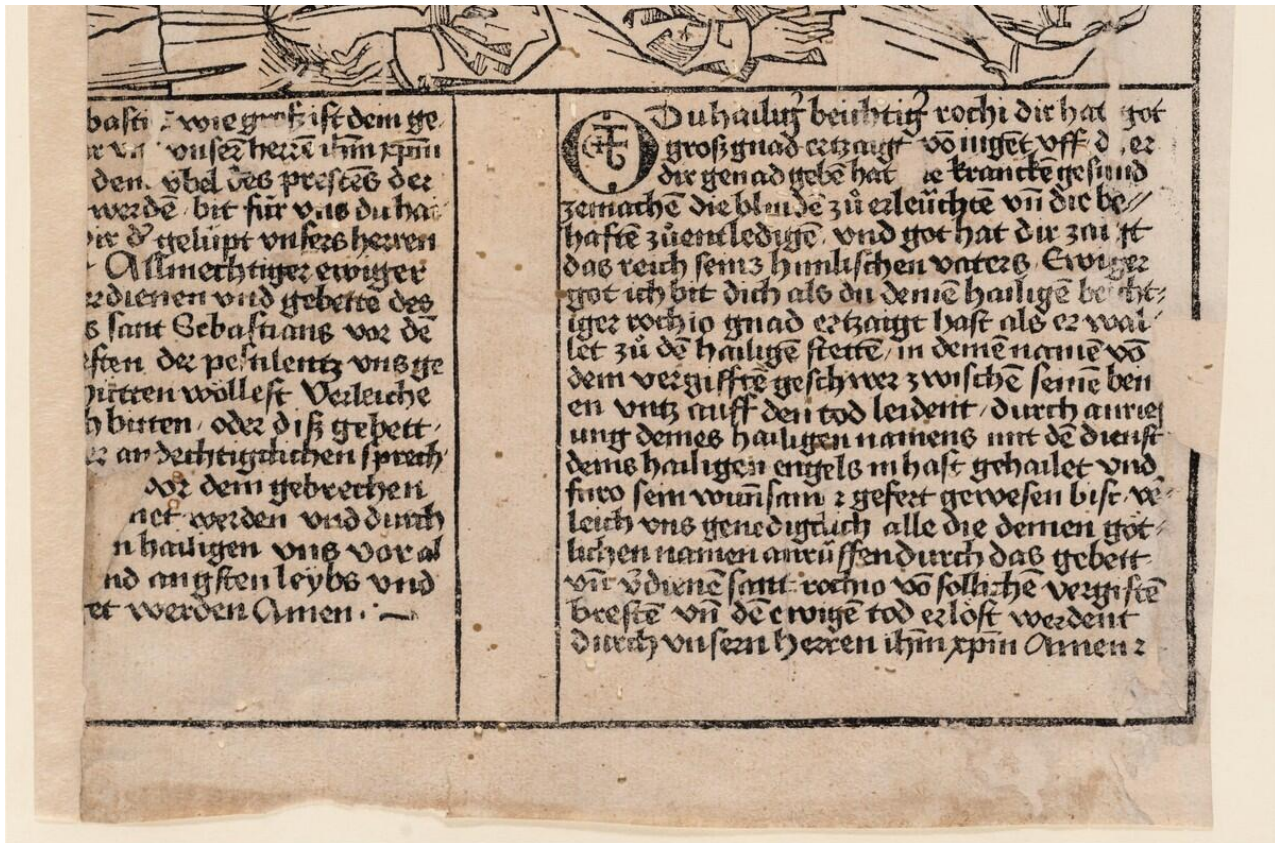 basti wie groß ist dein ge
vnserē herrē ihm̄ xp̄m
den vbel des prestēs der
werdē bit für vns du hai
dir dˀ gelüpt vnsers herren
Allmechtiger ewiger
verdienen vnd gebette des
s sant Sebastians vor dē
ften der pestilentz vns ge
hütten wöllest Verleiche
h bitten / oder diß gebett
er andechtigclichen sprech
vor dem gebrechen
net werden vnd durch
n hailigen vns vor al
nd angsten leybs vnd
et werden Amen
O Du hailigˀ beichtigˀ rochi dir hat got
groß gnad ertzaigt vō iugēt vff er
dir gen ad gebē hat kranckē gesund
zemachē die blindē zů erleüchtē vn̄ die be//
haftē zů entledigē vnd got hat dir
das reich seinz himlischen vaters Ewiger
got ich bit dich als du deinē hailigē beicht⸗
iger rochio gnad ertzaigt hast als er wal⸗
let zů dē hailigē stettē / in deinē namē vō
dem vergifftē geschwer zwischē seinē ben
en vntz auff den tod leident / durch anrieff
ung deines hailigen namens mit dē dienst
deins hailigen engels in hast gehailet vnd
füro sein wun̄sam ꝛ gefert gewesen bist vē⸗
leich vns genedigclich alle die deinen göt⸗
lichen namen anrüffen durch das gebett
vn̄ v̄dienē sant rochio vō sollichē vergiftē
brestē vn̄ dē ewigē tod erlöst werdent
durch vnsern herren ihm̄ xp̄m Amen ꝛ